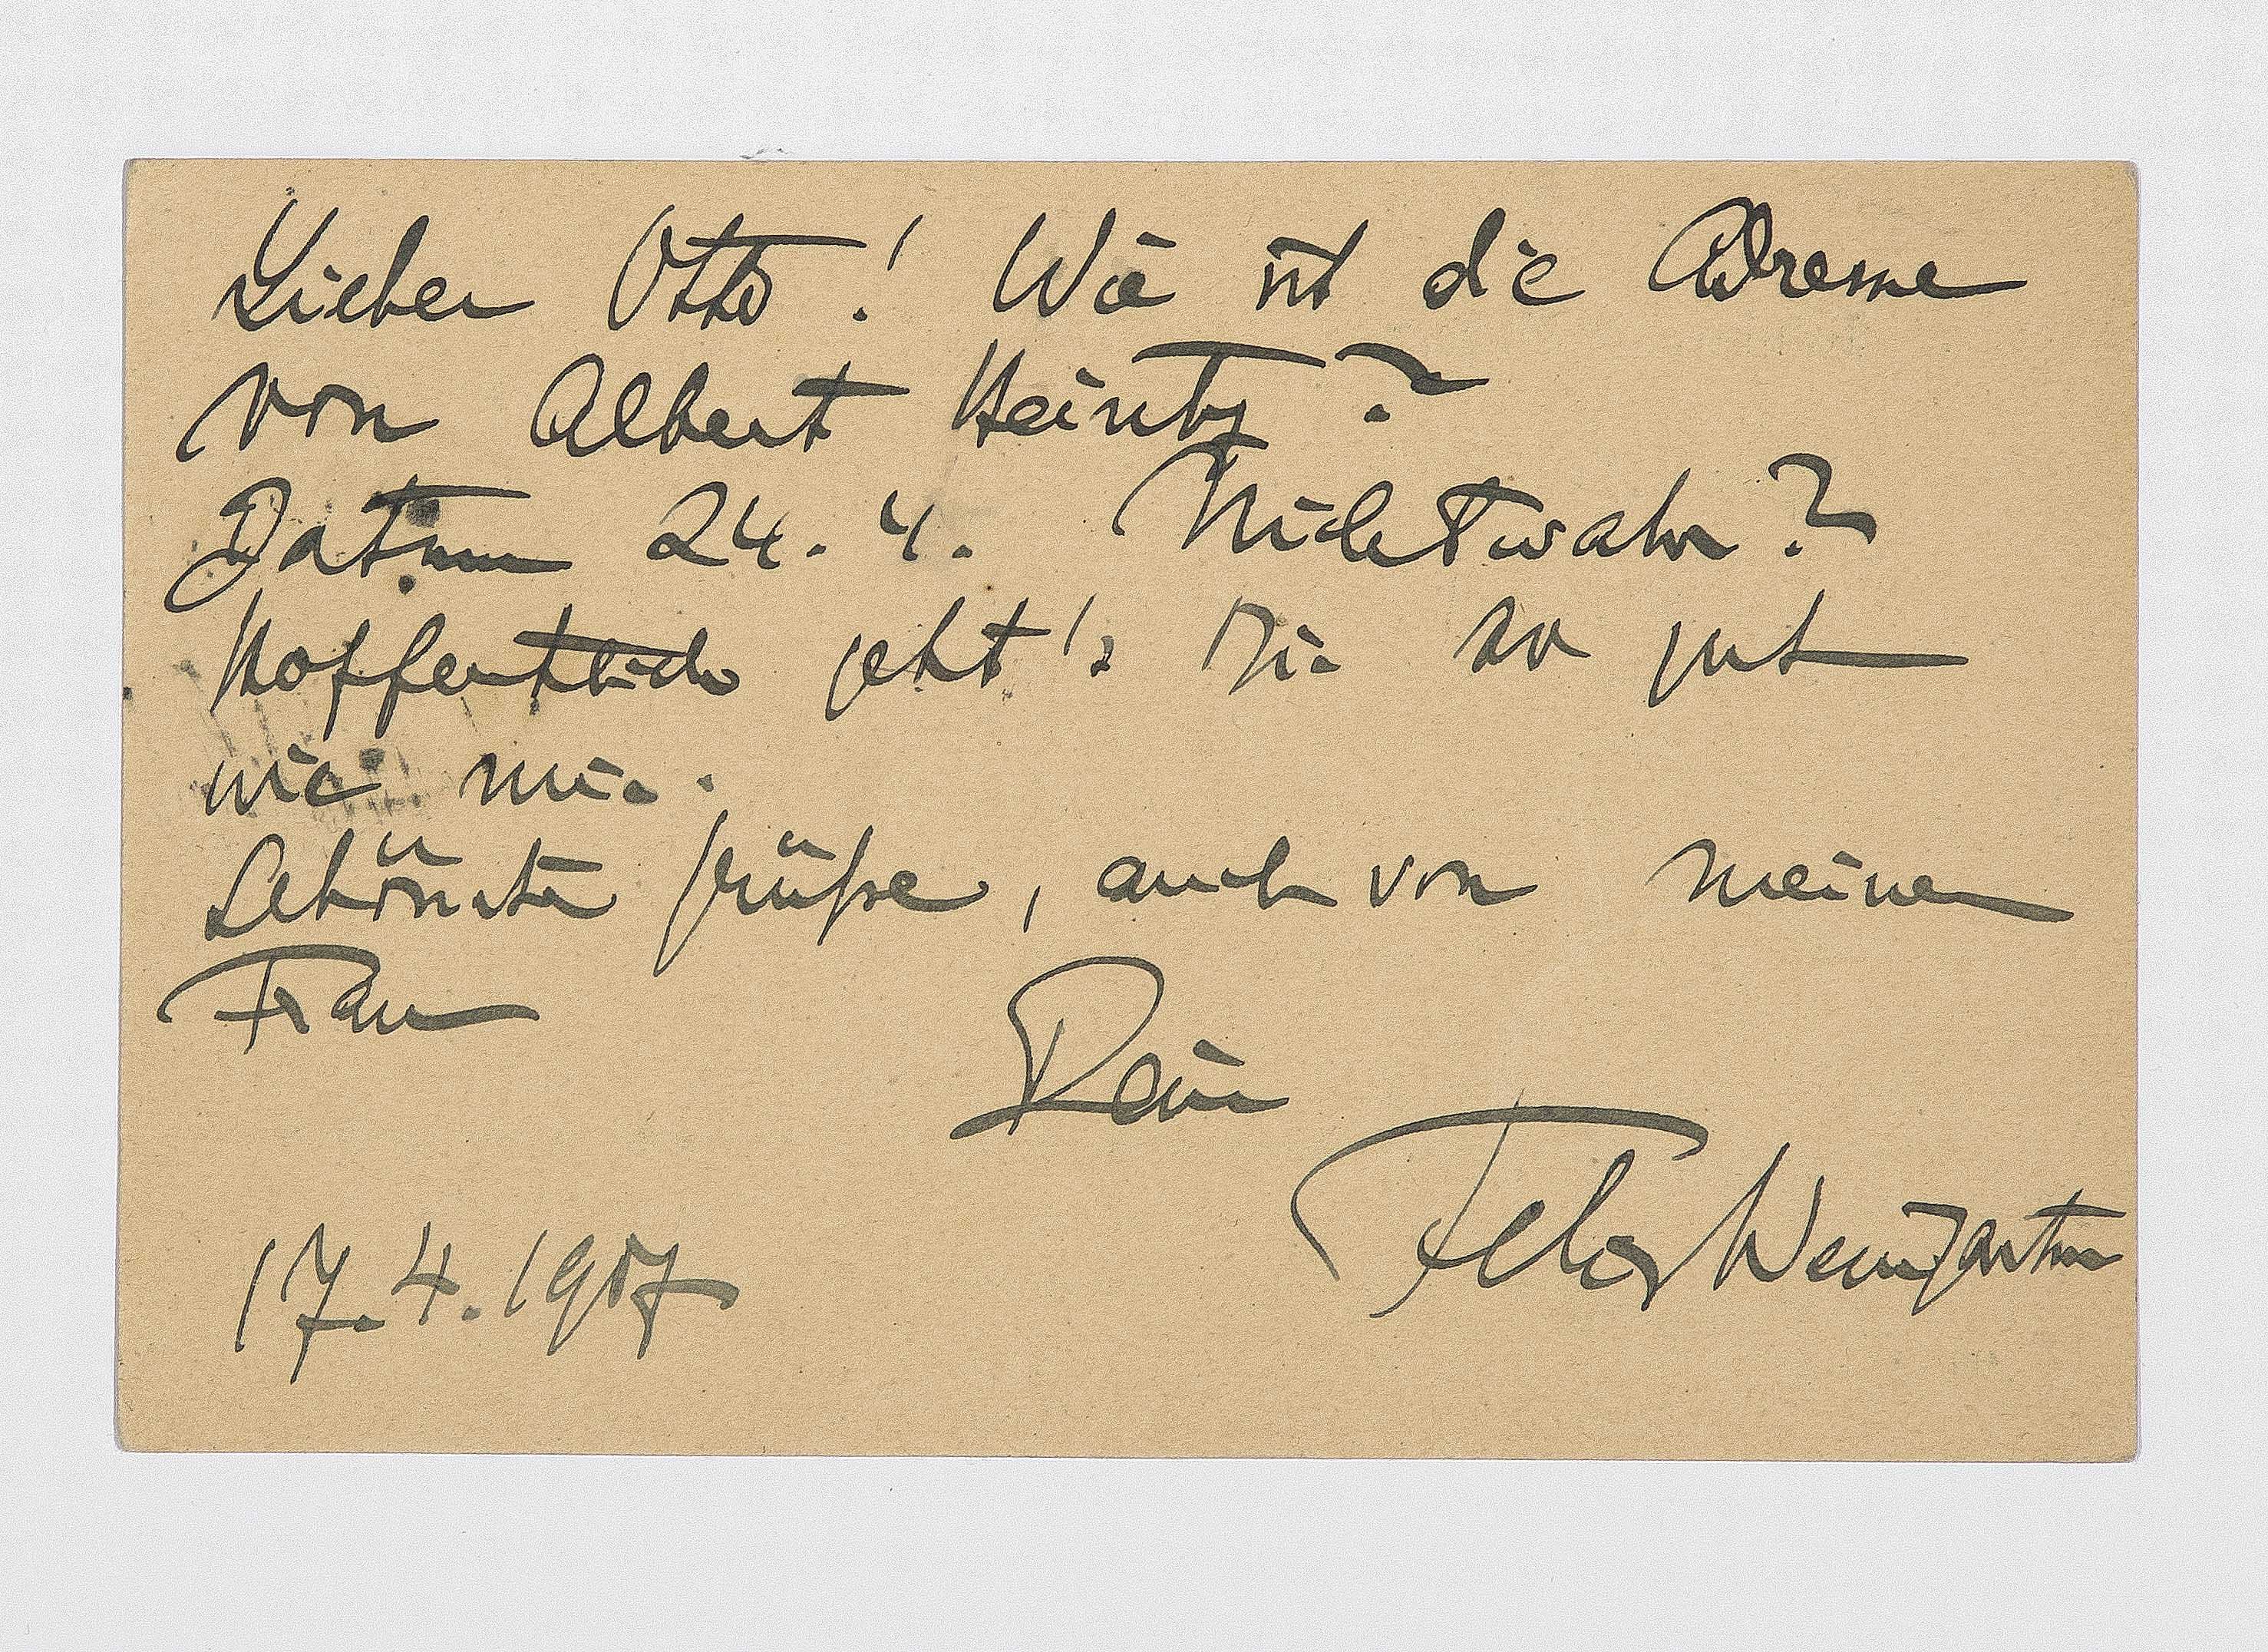 Lieber Otto! Wie ist die Adresse
von Albert Heintz?
Datum 24. 4. Nichtwahr?
Hoffentlich geht's Dir so gut
wie mir.
Schönste Grüße, auch von meiner
Frau
Dein
Felix Weingartner
17. 4. 1907